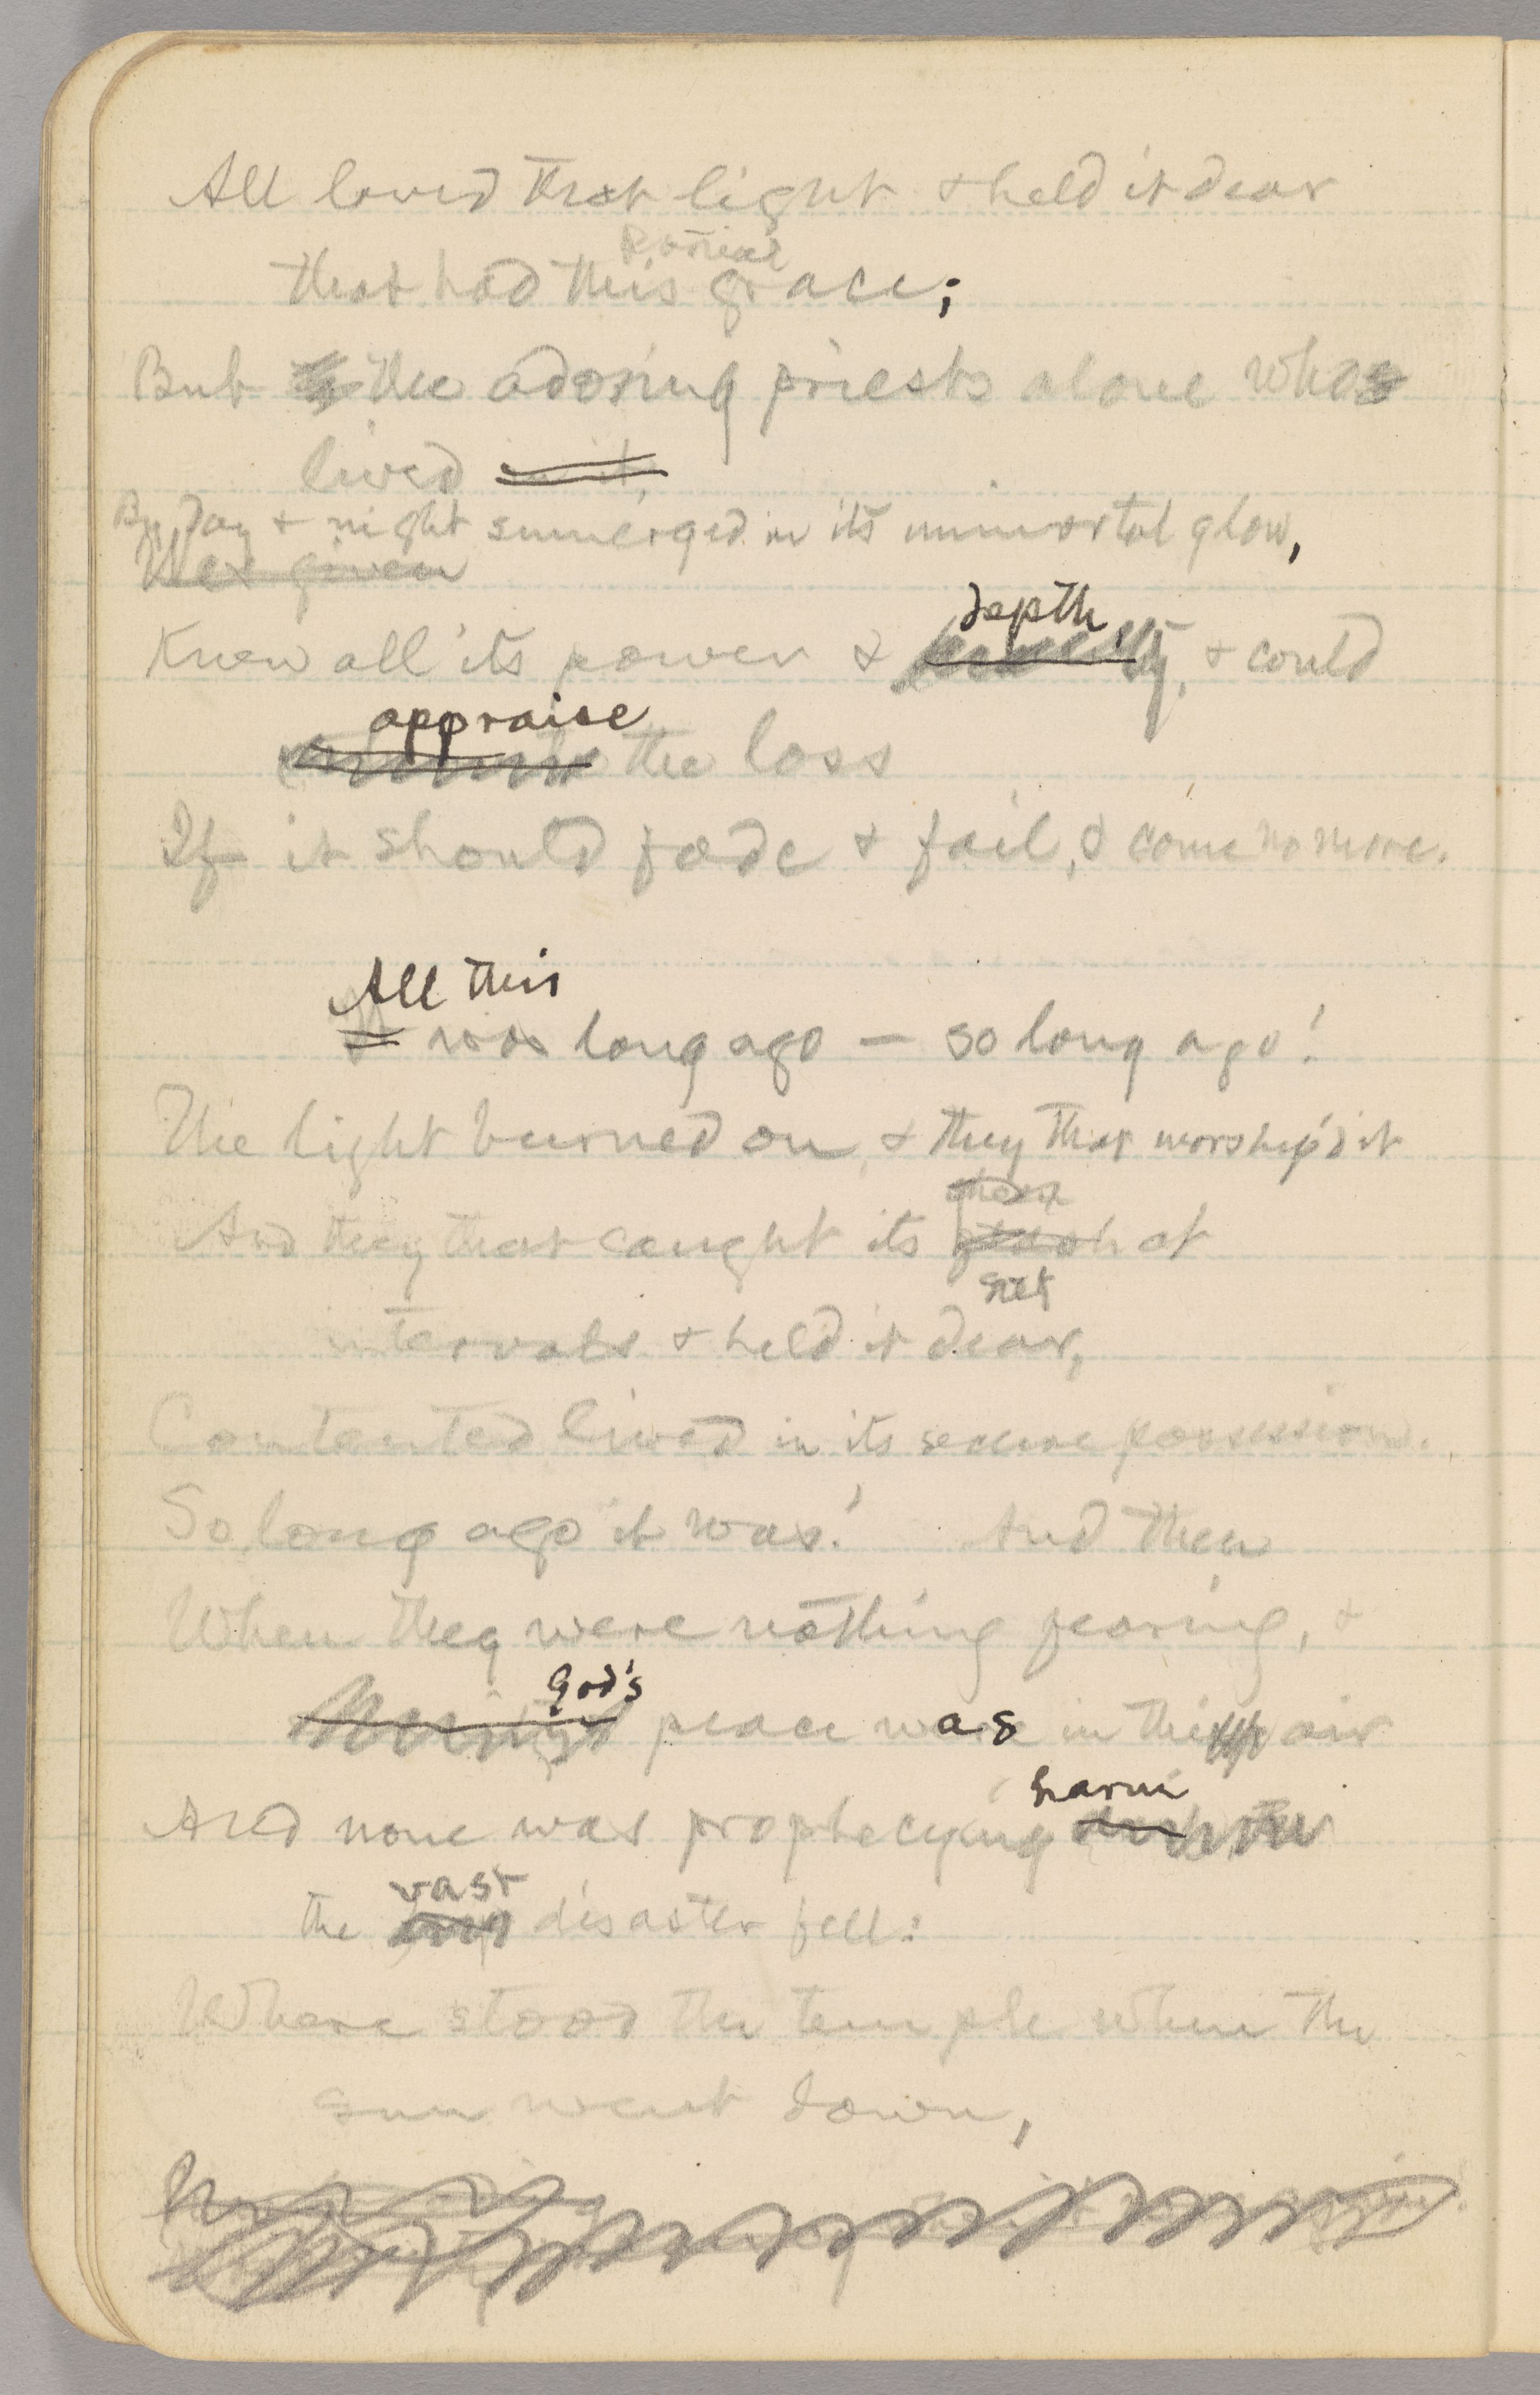 All loved that light & held it dear
partial
that had this grace;
But the adoring priests alone who
lived in it,
By day & night sumerged in its immortal glow,
Was given
Knew all its power & depth, & could
appraise the loss
If it should fade & fail, & come no more.
All this
was long ago — so long ago!
The light burned on, & they that worship'd it
And they that caught its at
intervals & held it dear,
Contented lived in its secure possession.
So long ago it was! And then
When they were nothing fearing, &
God's
peace was in the air
And none was prophecying harm
vast
the disaster fell:
Where stood the temple when the
sun went down,